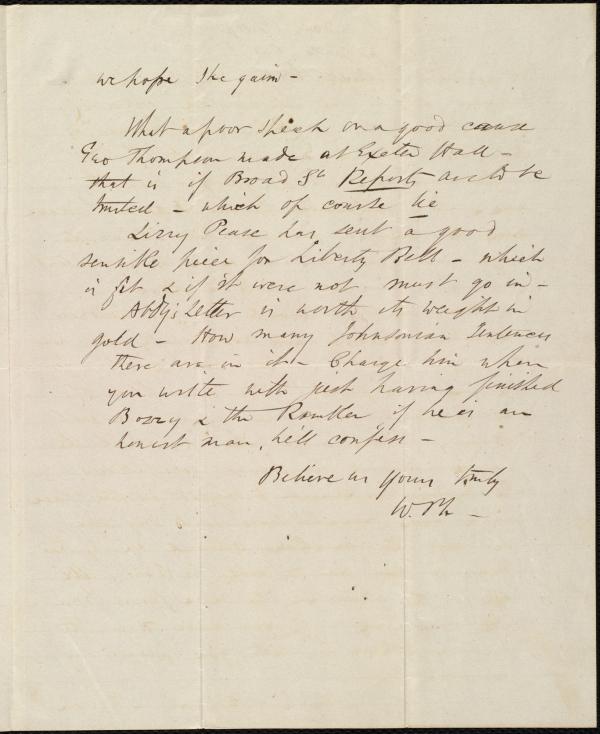 we hope the gain -
What a poor speech on a good cause
Geo Thompson made at Exeter Hall -
that is if Broad St Reports are to be
trusted - which of course lie
Lizzy Pease has sent a good
sensible piece for Liberty Bell - which
is fit & if it were not must go in -
Abdy's letter is worth its weight in
gold - How many Johnsonian Sentences
there are in it - Charge him when
you write with just having finished
Bozzy & the Rambler if he is an
honest man, he'll confess -
Believe us yours truly
W. Ph -